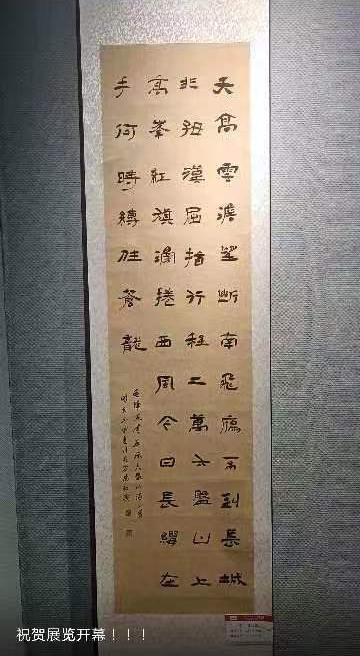 天高雲淡望断南飛鴈不到長城
非好漢屈指行程二萬六盤山上
高峯紅旗漫捲西風今日長纓在
手何時縛住蒼龍
祝贺展览开幕！！！